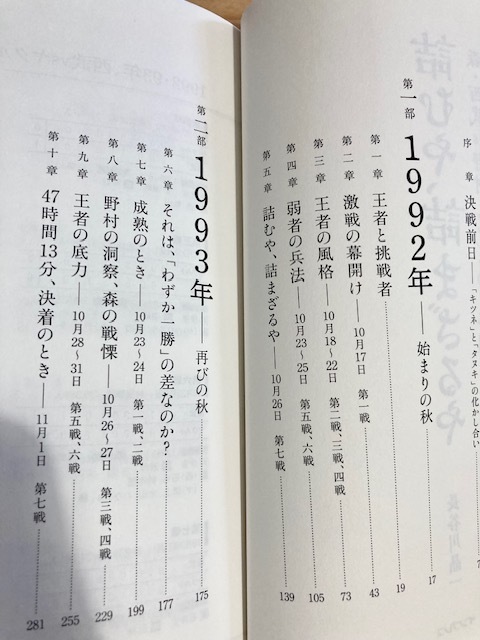 序章 決戦前日――「キツネ」と「タヌキ」の化かし合い
第一部 1992年――始まりの秋 17
第一章 王者と挑戦者 19
第二章 激戦の幕開け――10月17日 第一戦 43
第三章 王者の風格――10月18〜22日 第二戦、三戦、四戦 73
第四章 弱者の兵法――10月23〜25日 第五戦、六戦 105
第五章 詰むや、詰まざるや――10月26日 第七戦 139
第二部 1993年――再びの秋 175
第六章 それは、「わずか一勝」の差なのか? 177
第七章 成熟のとき――10月23〜24日 第一戦、二戦 199
第八章 野村の洞察、森の戦慄――10月26〜27日 第三戦、四戦 229
第九章 王者の底力――10月28〜31日 第五戦、六戦 255
第十章 47時間13分、決着のとき――11月1日 第七戦 281